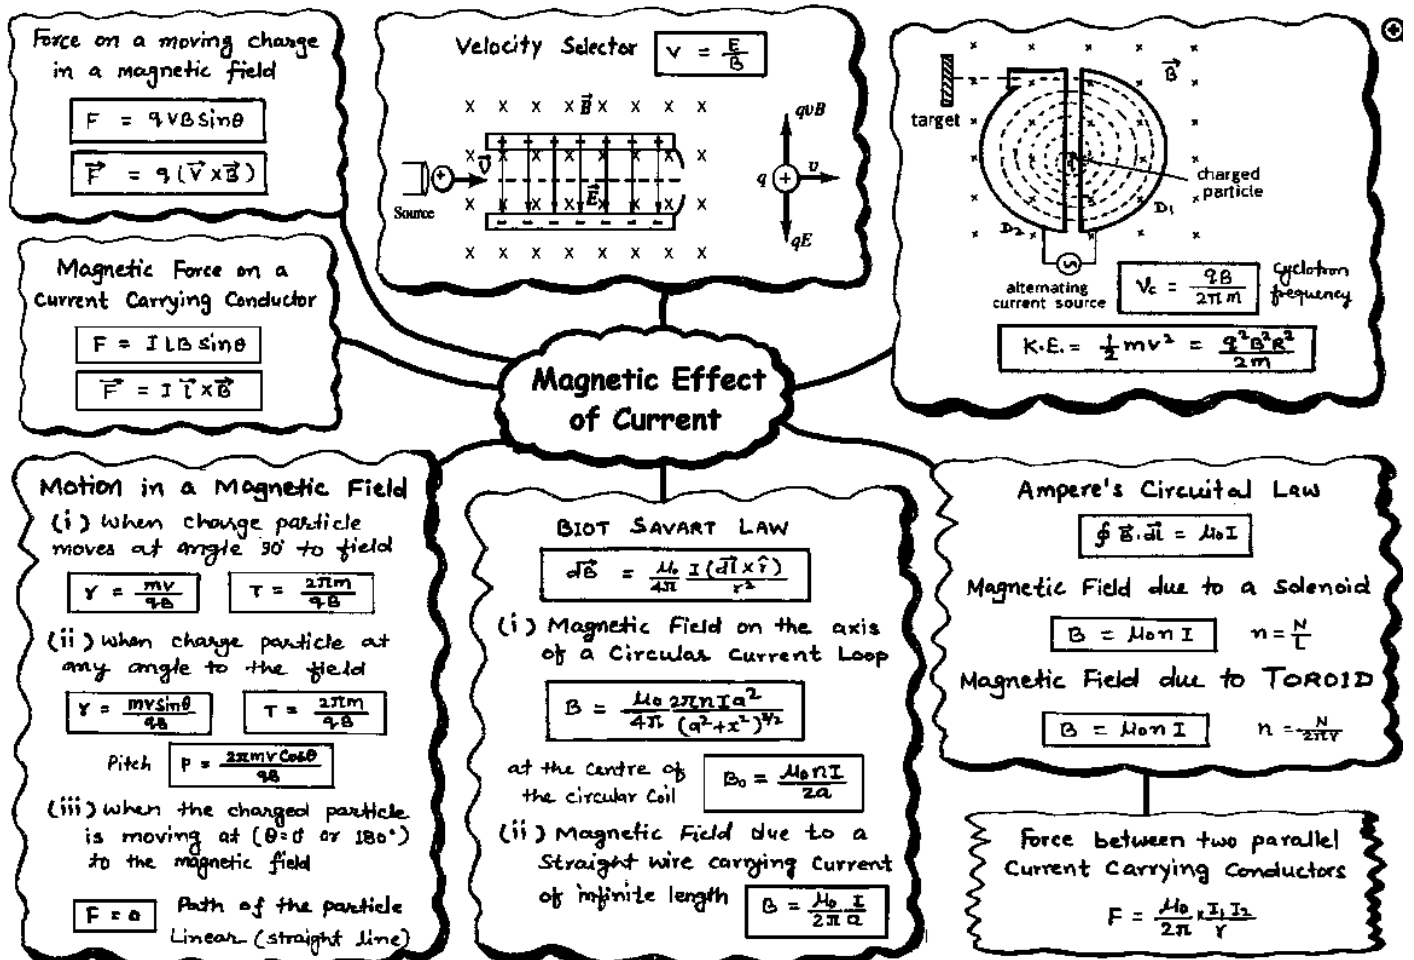 Force on a moving charge
in a magnetic field
F = qVB Sinθ
F⃗ = q (V⃗ × B⃗)
Velocity Selector V = E/B
B⃗
V⃗
Source
E⃗
qvB
q
v
qE
B⃗
target
charged
particle
D₁
D₂
alternating
current source
νc = qB/2πm
Cyclotron
frequency
K.E. = ½ mv² = q²B²R²/2m
Magnetic Force on a
Current Carrying Conductor
F = ILB sinθ
F⃗ = I l⃗ × B⃗
Magnetic Effect
of Current
Motion in a Magnetic Field
(i) When charge particle
moves at angle 90° to field
r = mv/qB T = 2πm/qB
(ii) When charge particle at
any angle to the field
r = mvsinθ/qB T = 2πm/qB
Pitch P = 2πmv Cosθ/qB
(iii) When the charged particle
is moving at (θ=0° or 180°)
to the magnetic field
F = 0 Path of the particle
Linear (straight line)
BIOT SAVART LAW
dB⃗ = μ₀/4π I(dl⃗ × r̂)/r²
(i) Magnetic Field on the axis
of a Circular Current Loop
B = μ₀/4π 2πnIa²/(a²+x²)^3/2
at the Centre of
the circular Coil B₀ = μ₀nI/2a
(ii) Magnetic Field due to a
Straight wire carrying Current
of infinite length B = μ₀/2π I/a
Ampere's Circuital Law
∮ B⃗.dl⃗ = μ₀I
Magnetic Field due to a Solenoid
B = μ₀nI n = N/L
Magnetic Field due to TOROID
B = μ₀nI n = N/2πr
Force between two parallel
Current Carrying Conductors
F = μ₀/2π × I₁I₂/r